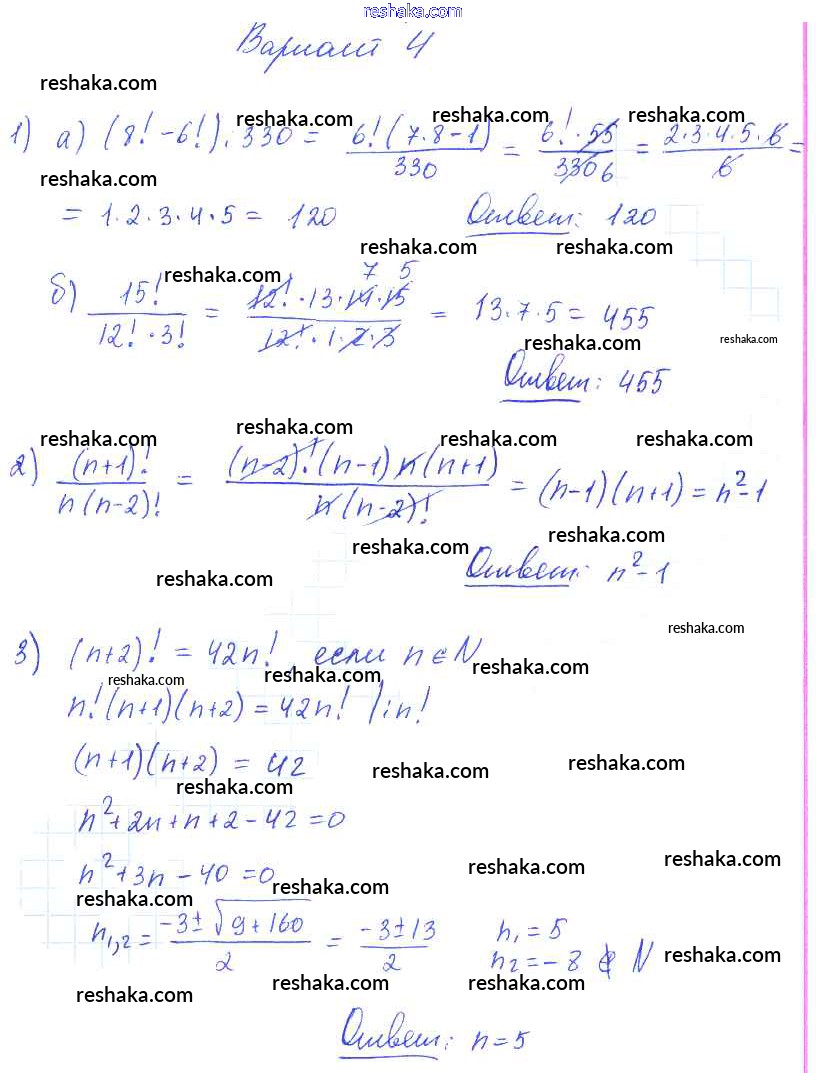 reshaka.com
Вариант 4
reshaka.com
reshaka.com reshaka.com reshaka.com
1) а) (8! - 6!) : 330 = 6!(7·8-1)/330 = 6!·55/330 6 = 2·3·4·5·6/6 =
reshaka.com reshaka.com reshaka.com
= 1·2·3·4·5 = 120 Ответ: 120
reshaka.com reshaka.com
reshaka.com 7 5
б) 15!/12!·3! = 12!·13·14·15/12!·1·2·3 = 13·7·5 = 455
reshaka.com reshaka.com
Ответ: 455
reshaka.com reshaka.com reshaka.com reshaka.com
2) (n+1)!/n(n-2)! = (n-2)!(n-1)n(n+1)/n(n-2)! = (n-1)(n+1) = n²-1
reshaka.com reshaka.com
reshaka.com Ответ: n²-1
reshaka.com
3) (n+2)! = 42n!, если n∈N
reshaka.com reshaka.com reshaka.com
n!(n+1)(n+2) = 42n! /:n!
(n+1)(n+2) = 42
reshaka.com reshaka.com reshaka.com
n²+2n+n+2-42=0
reshaka.com reshaka.com
n²+3n-40=0
reshaka.com reshaka.com
n1,2 = -3±√9+160/2 = -3±13/2 n1=5
n2=-8 ∉ N
reshaka.com
reshaka.com reshaka.com reshaka.com reshaka.com
Ответ: n=5